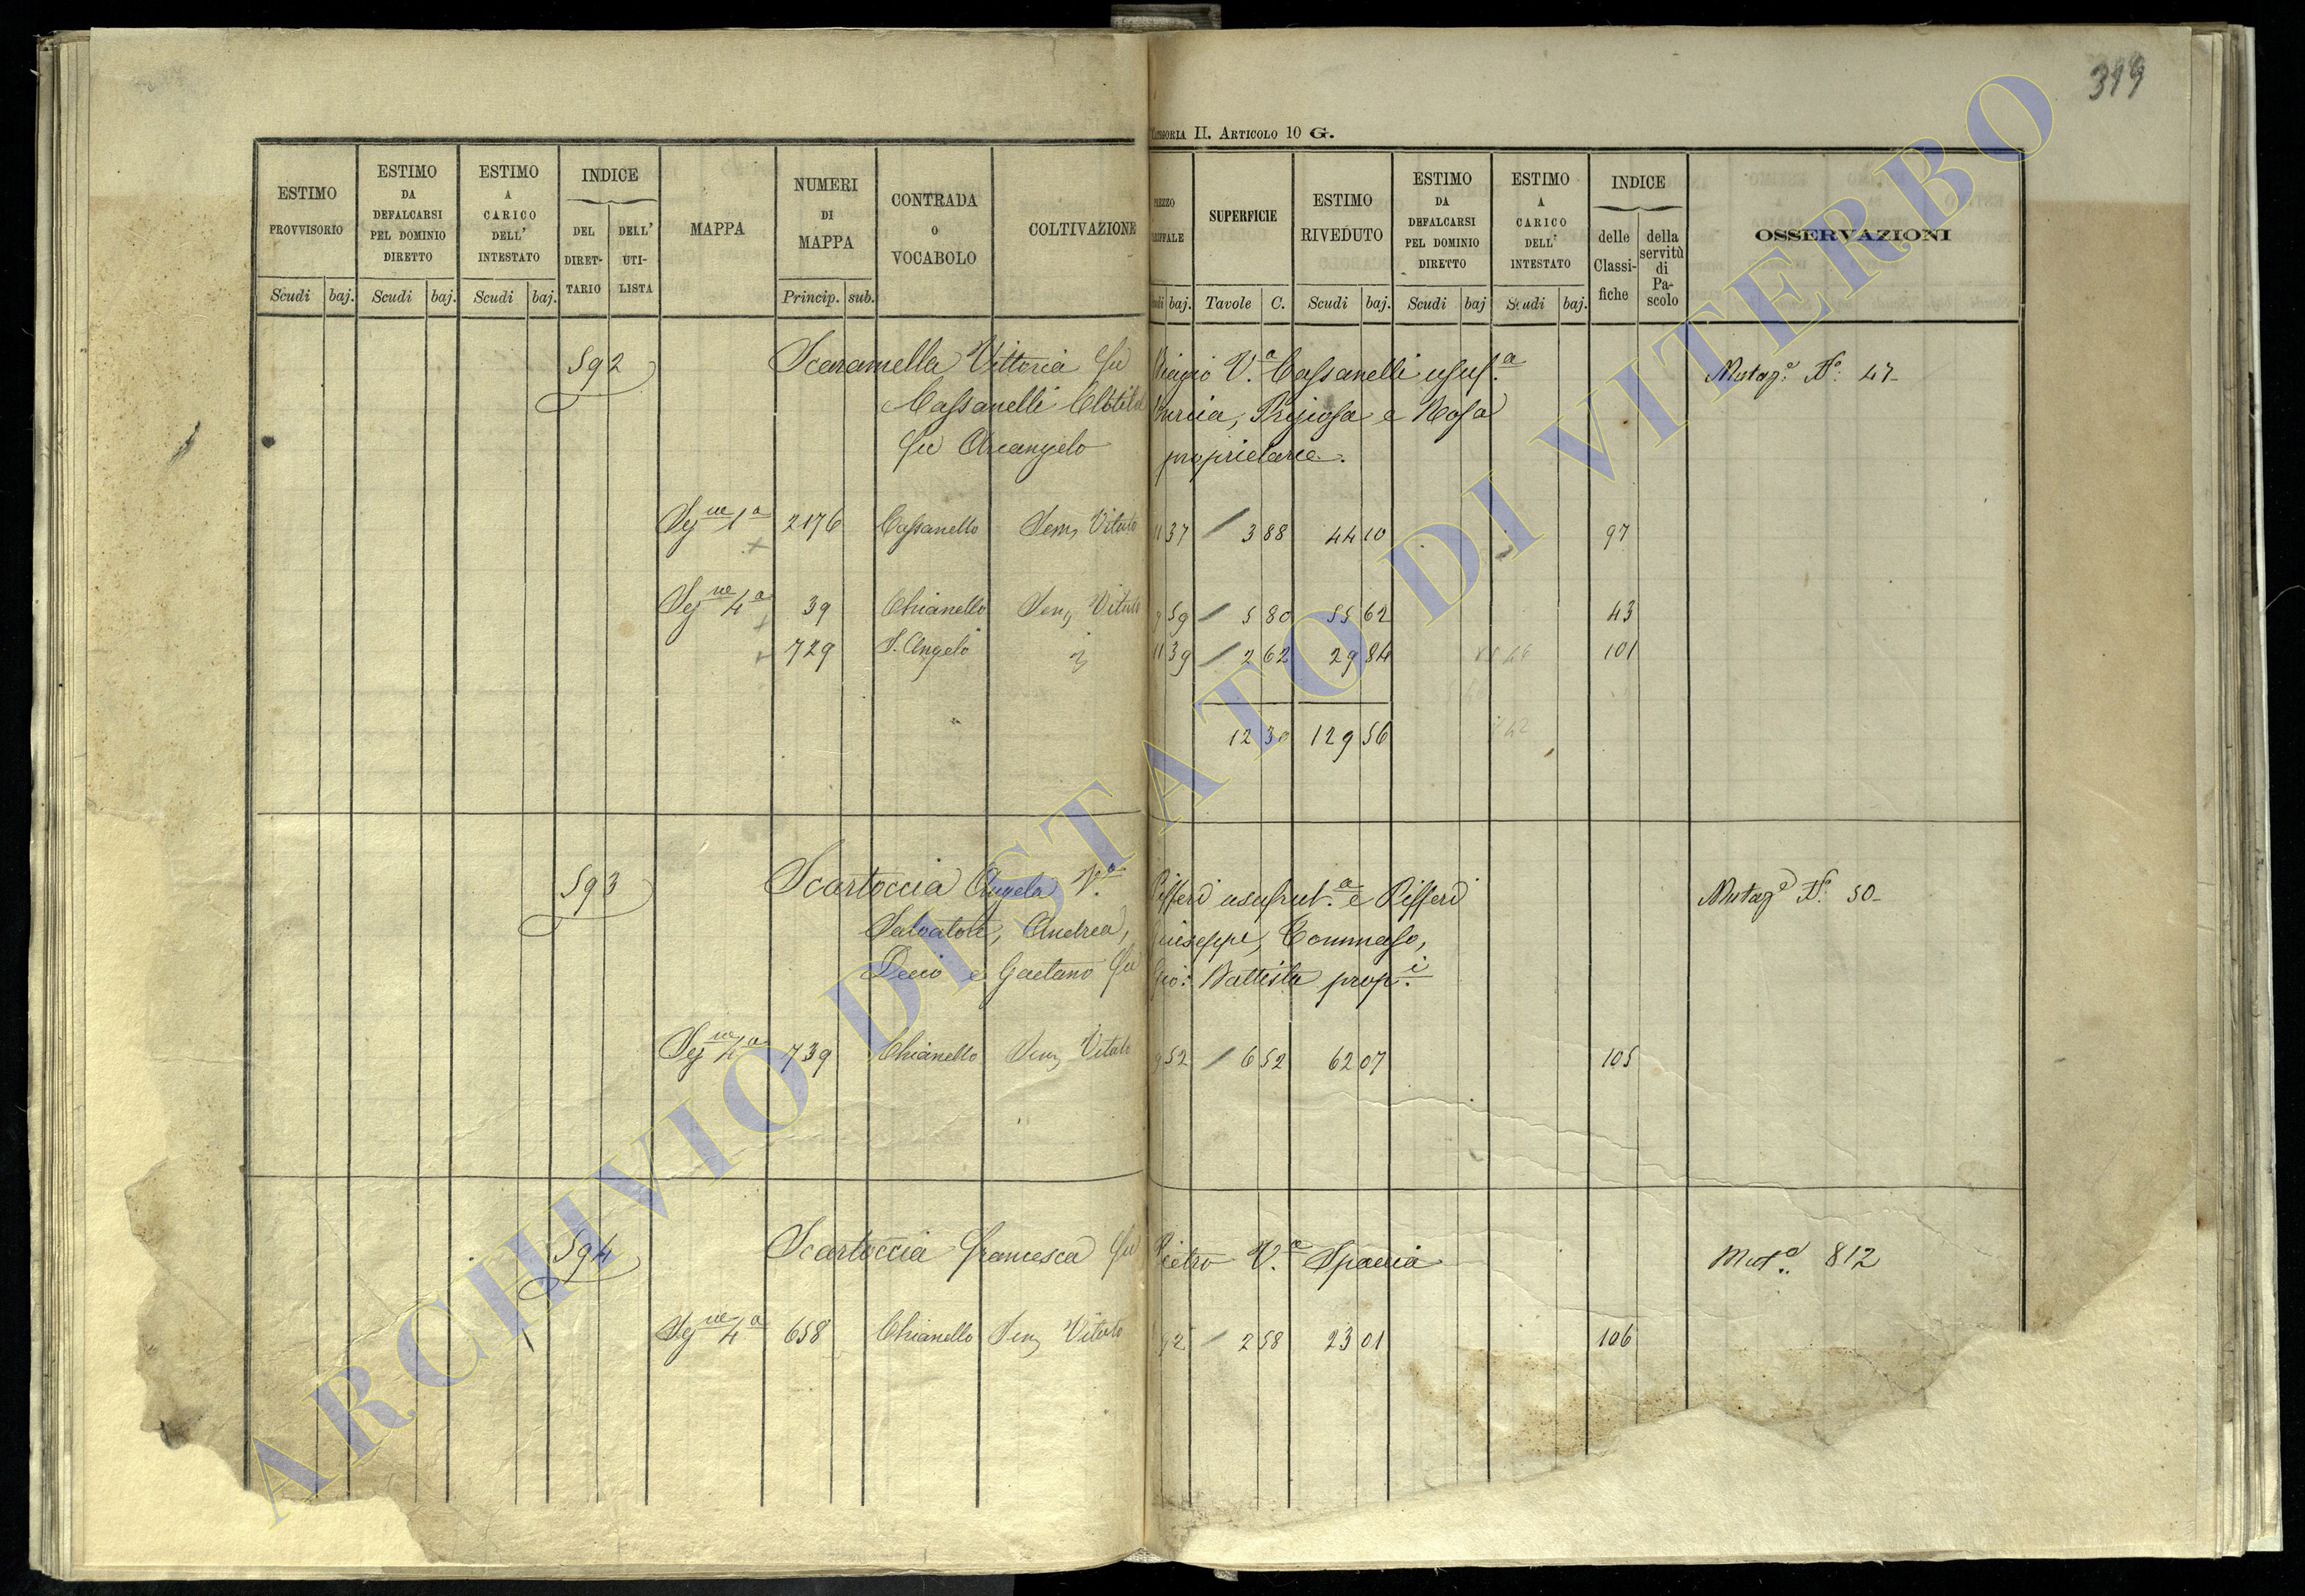 399
CATEGORIA II. ARTICOLO 10 G.
ESTIMO PROVVISORIO
ESTIMO DA DEFALCARSI PEL DOMINIO DIRETTO
ESTIMO A CARICO DELL' INTESTATO
INDICE
DEL DIRET-TARIO
DELL' UTI-LISTA
MAPPA
NUMERI DI MAPPA
CONTRADA O VOCABOLO
COLTIVAZIONE
SUPERFICIE
ESTIMO RIVEDUTO
ESTIMO DA DEFALCARSI PEL DOMINIO DIRETTO
ESTIMO A CARICO DELL' INTESTATO
INDICE
delle Classi-fiche
della servitù di Pa-scolo
OSSERVAZIONI
Scudi baj. Scudi baj. Scudi baj. Princip. sub. baj. Tavole C. Scudi baj. Scudi baj Scudi baj.
592 Scaramella Vittoria fu Biagio V.a Cassanelli usuf.a Mutaz.e N.o 47
Cassanelli Clotilde e Rosa
fu Arcangelo proprietarie.
Sez.ne 1a 2176 Cassanello Sem. Vitato 11 37 / 3 88 44 10 97
Sez.ne 4a 39 Chianello Sem. Vitato 9 59 / 5 80 55 62 43
729 S. Angelo 11 39 / 2 62 29 84 101
12 30 129 56
593 Scartoccia Angela V.a Pifferi usufrut.a e Pifferi Mutaz.e N.o 50
Salvatore, Andrea, Giuseppe, Tommaso,
Decio e Gaetano fu Gio: Battista prop.i
Sez.ne 4a 739 Chianello Sem. Vitato 9 52 / 6 52 62 07 105
594 Scartoccia Francesca fu Pietro V.a Mut.a 812
Sez.ne 4a 658 Chianello Sem. Vitato 92 / 2 58 23 01 106
ARCHIVIO DI STATO DI VITERBO